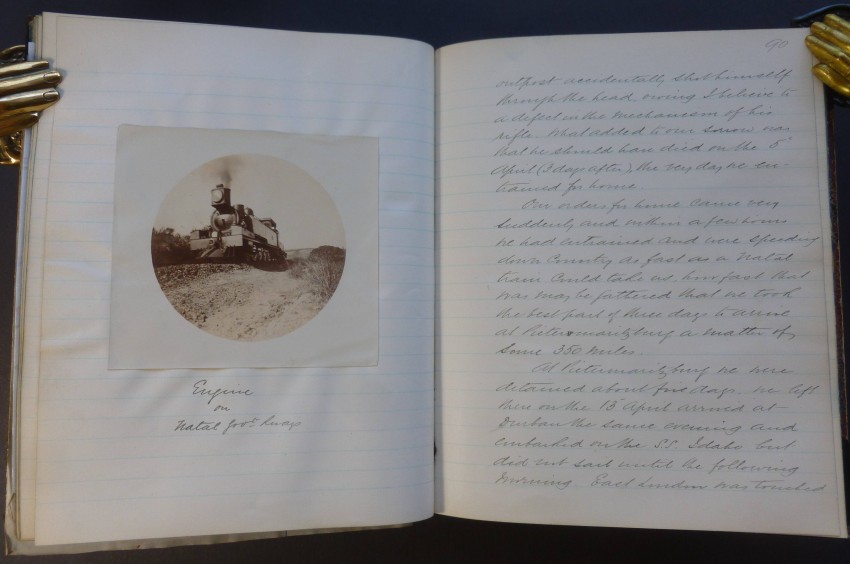 Engine
on
Natal Govt. Rways
90
outpost accidentally shot himself
through the head owing I believe to
a defect in the mechanism of his
rifle. What added to our sorrow was
that he should have died on the 5th
April (3 days after) the very day we en-
trained for home.
Our orders for home came very
suddenly and within a few hours
we had entrained and were speeding
down Country as fast as a Natal
train could take us, how fast that
was may be gathered that we took
the best part of three days to arrive
at Pietermaritzburg a matter of
some 350 miles.
At Pietermaritzburg we were
detained about five days. We left
there on the 13 April arrived at
Durban the same evening and
embarked on the S.S. Idaho but
did not sail until the following
morning. East London was touched